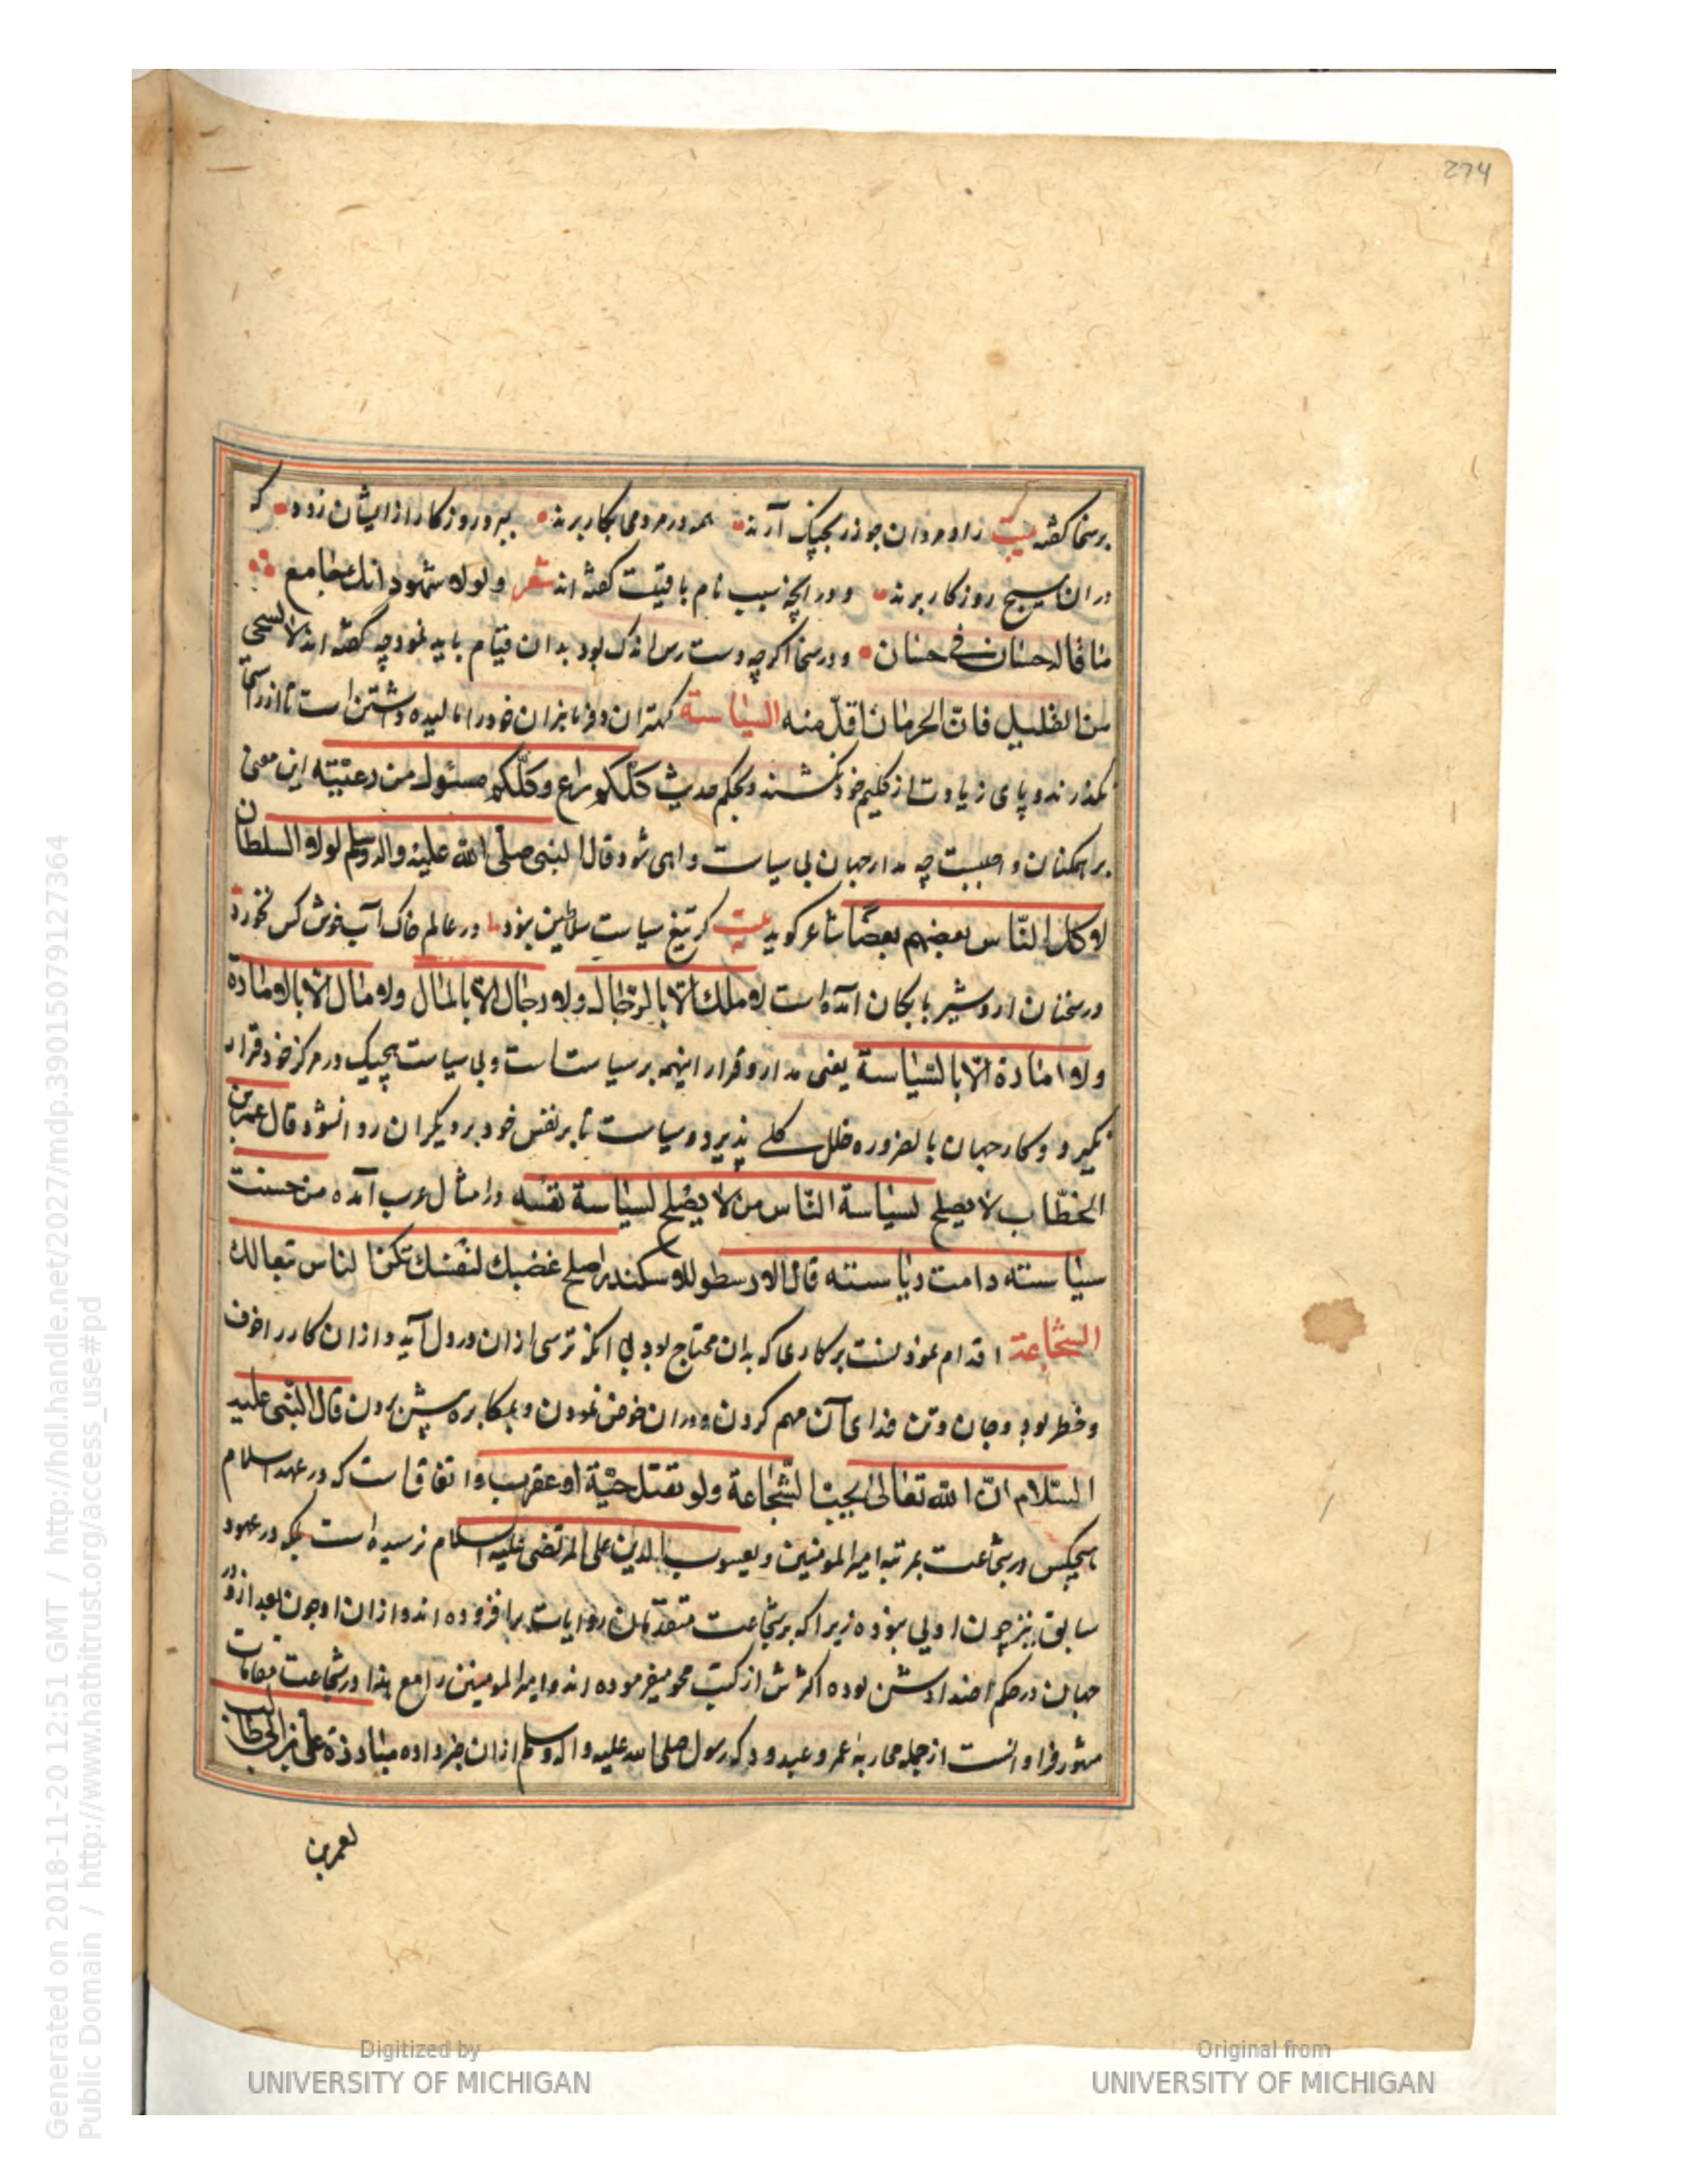 274
برسخا کفته بیت زاد مردان چو زر بچنک آرند همه در مردمی بکار برند ببر و روزکار از ایشان زود که
در ان بسیج روزکار برند و در آنچه سبب نام باقیست کفته اند شعر ولولا شهود انك
ما قال حسان في حسان و در سخا اکرچه دست رس اندک بود بدان قیام باید نمود چه کفته اند لا تستحي
من القليل فان الحرمان اقل منه السياسة کهتران و فرمانبران خود را مالیده داشتن است تا از راستی
نکذرند و پای زیادت از کلیم خود نکشند و بحکم حدیث كلكم راع وكلكم مسئول من رعيته این معنی
بر همکنان واجبست چه مدار جهان بی سیاست واهی شود قال النبى صلى الله عليه واله وسلم لولا السلطان
لاكل الناس بعضهم بعضا شاعر کوید بیت کر تیغ سیاست سلاطین نبود در عالم خاک آب خوش کس نخورد
در سخنان اردشیر بابکان آمده است لا ملك الا بالرجال ولا رجال الا بالمال ولا مال الا بالامارة
ولا امارة الا بالسياسة یعنی مدار و قرار اینهمه بر سیاستست و بی سیاست هیچیک در مرکز خود قرار
نکیرد و کار جهان بالضروره خلل کلی پذیرد و سیاست تا بر نفس خود بر دیکران روا نشود قال عمر بن
الخطاب لا يصلح لسياسة الناس من لا يصلح لسياسة نفسه و امثال عرب آمده من حسنت
سياسته دامت رياسته قال الارسطو للاسكندر اصلح نفسك لنفسك تكن الناس تبعا لك
الشجاعة اقدام نمودنست بر کارها که بدان محتاج بود بی انکه ترسی ازان در دل آید و ازان کار را خوف
و خطر بود و جان و تن فدای آن مهم کردن و دران خوض نمودن و بمکابره پیش بردن قال النبى عليه
السلام ان الله تعالى يحب الشجاعة ولو بقتل حية او عقرب و اتفاقست که در عهد اسلام
هیچکس در شجاعت بمرتبه امیر المومنین و یعسوب الدین علی المرتضی علیه السلام نرسیده است بلکه در عهود
سابق نیز چون اویی نبوده زیرا که بر شجاعت متقدمان روایات برافزوده اند و ازان او چون بعد از دور
جهان در حکم اضدادش بوده اکثرش از کتب محو میفرموده اند و امیر المومنین را مع هذا در شجاعت مقامات
مشهور فراوانست از جمله محاربه عمرو عبدود که رسول صلی الله علیه و آله وسلم ازان خبر داده مبارزة علي بن ابي طالب
لعمرو بن
Digitized by
UNIVERSITY OF MICHIGAN
Original from
UNIVERSITY OF MICHIGAN
Generated on 2018-11-20 12:51 GMT / http://hdl.handle.net/2027/mdp.39015079127364
Public Domain / http://www.hathitrust.org/access_use#pd